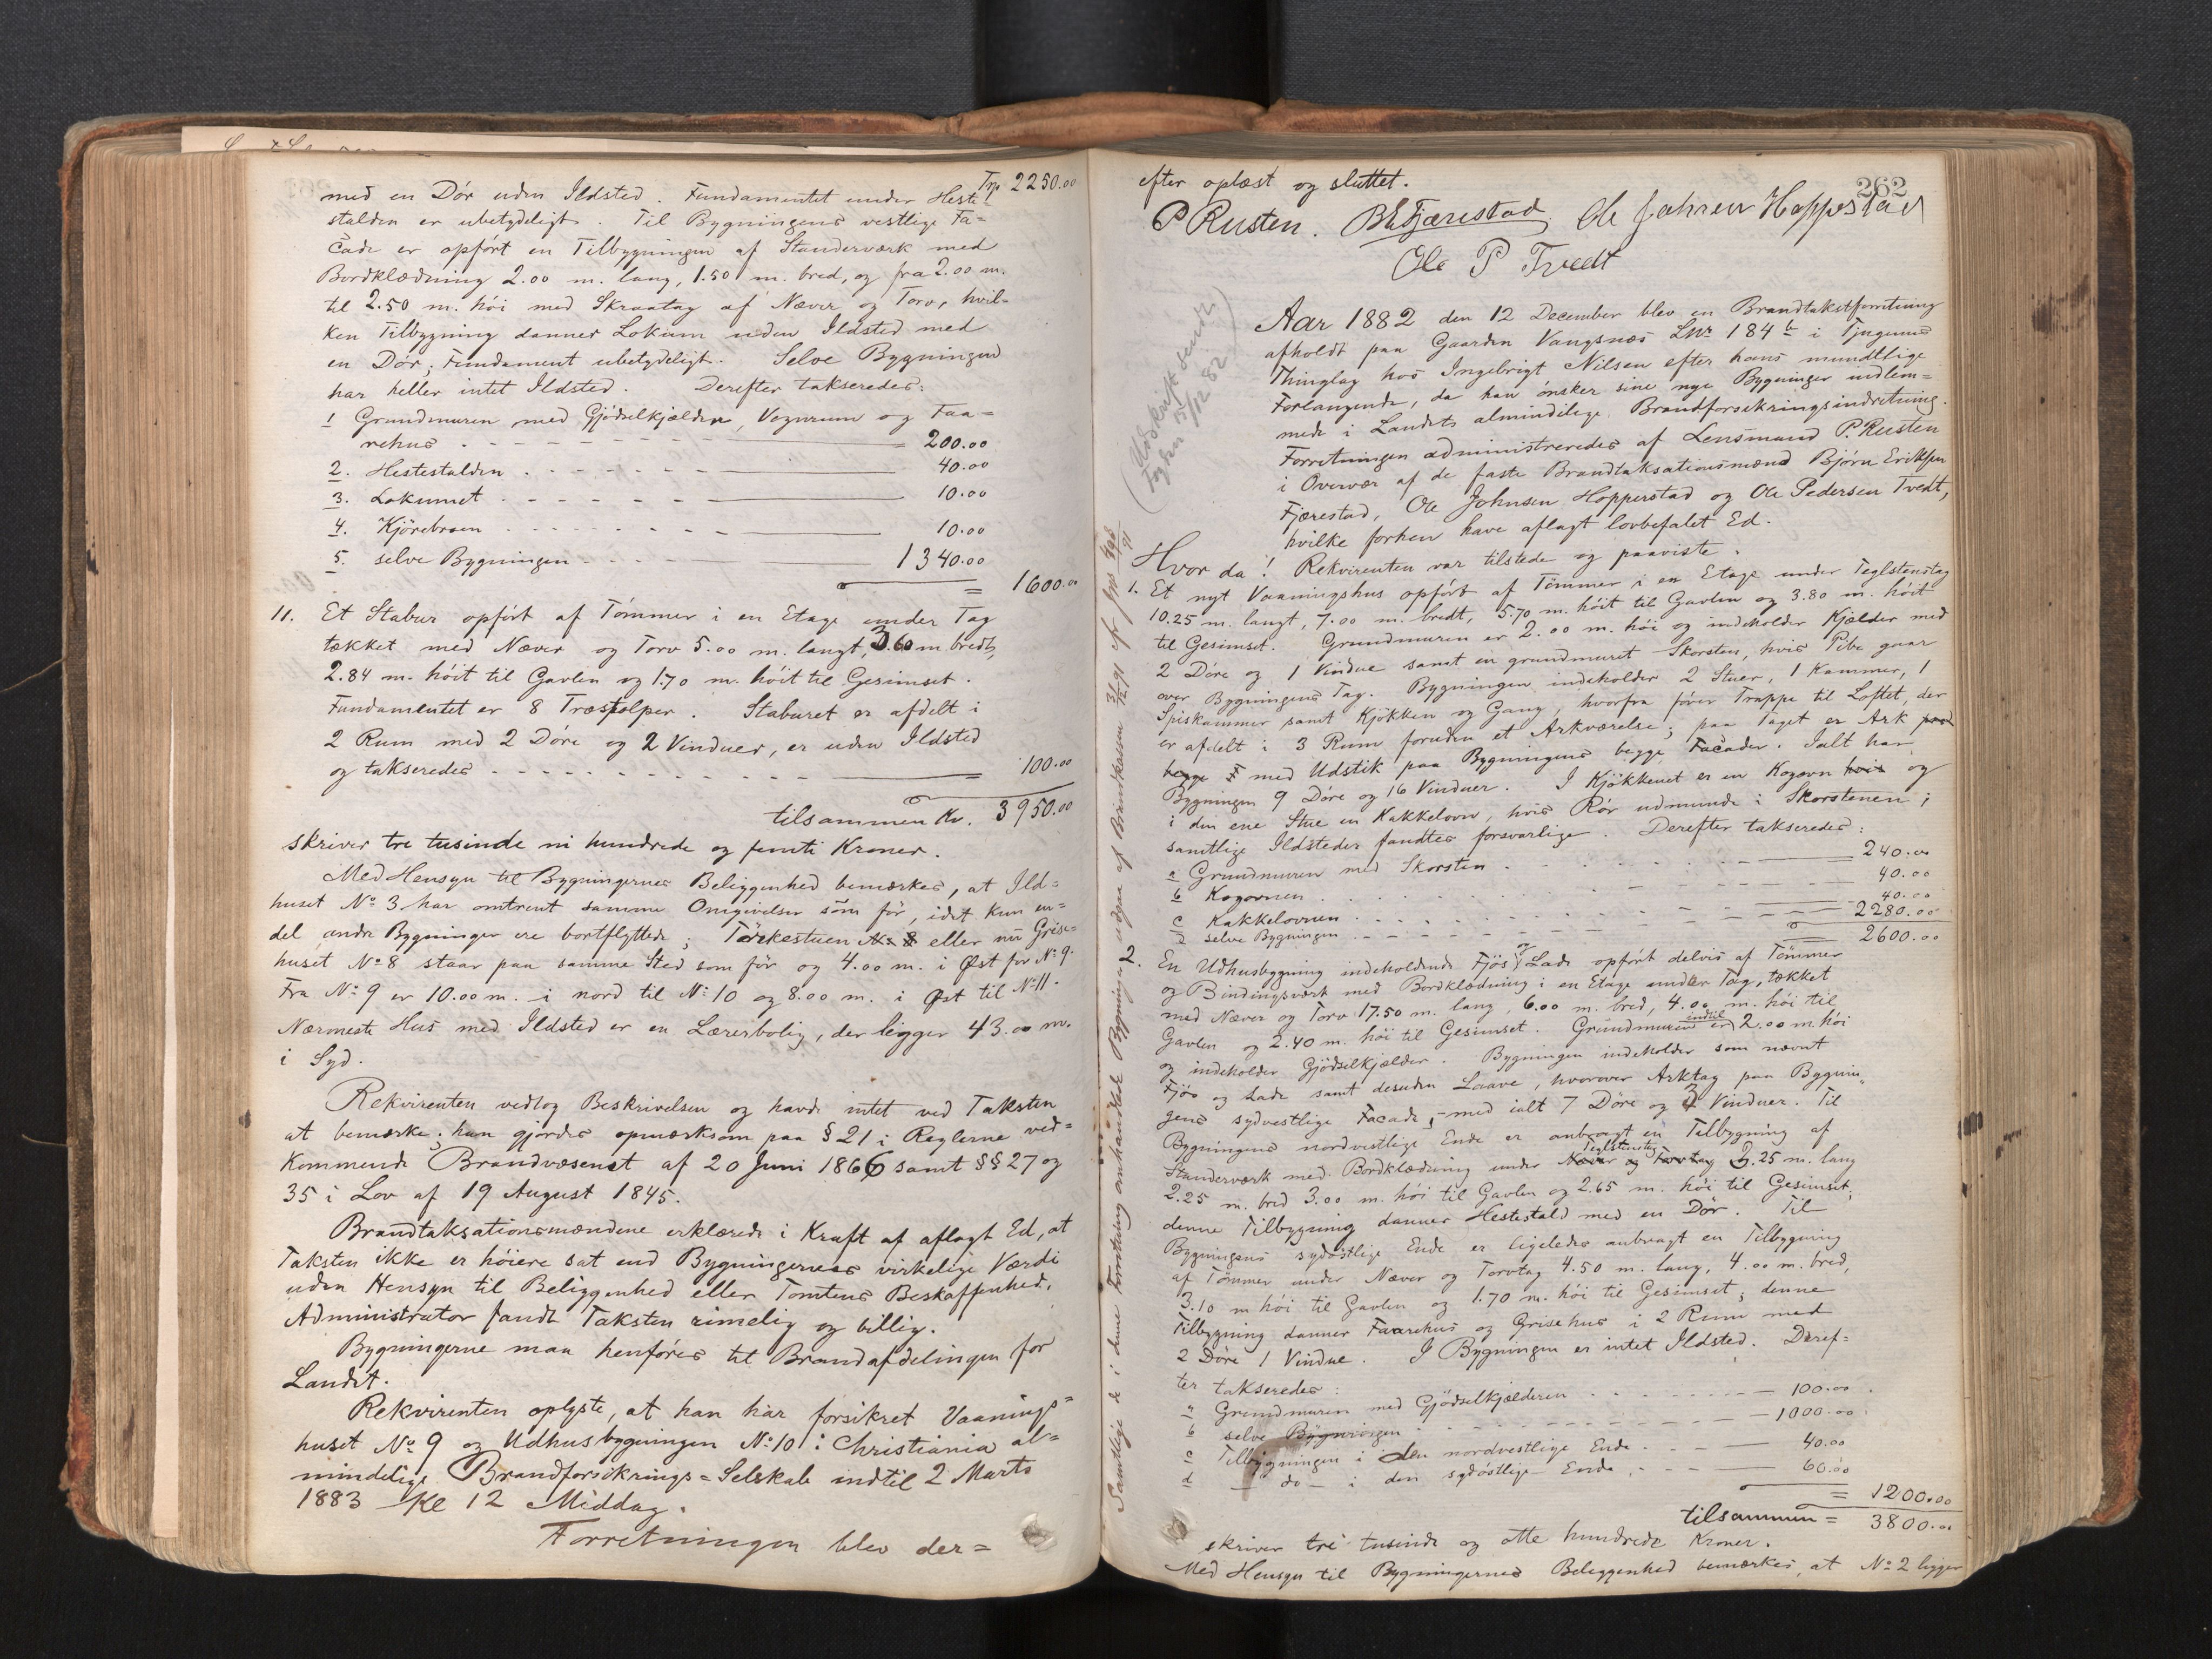 Trp. 2250.00
med en Dör uden Ildsted. Fundamentet under Heste-
stalden er ubetydeligt. Til Bygningens vestlige Fa=
çade er opført en Tilbygningen af Standerværk med
Bordklædning 2.00 m. lang, 1.50 m. bred, og fra 2.00 m.
til 2.50 m. höi med Skraatag af Næver og Torv, hvil=
ken Tilbygning danner Lokum uden Ildsted med
en Dör; Fundament ubetydeligt. Selve Bygningen
har heller intet Ildsted. Derefter takseredes:
1 Grundmuren med Gjödselkjælder, Vognrum og Faa=
rehus 200.00
2. Hestestalden 40.00
3. Lokumet 10.00
4. Kjörebroen 10.00
5. selve Bygningen 1340.00
= 1600.00
11. Et Stabur opfört af Tömmer i en Etage under Tag
tækket med Næver og Torv 5.00 m. langt, 3.60 m bredt,
2.84 m. höit til Gavlen og 1.70 m. höit til Gesimset.
Fundamentet er 8 Træstolper. Staburet er afdelt i
2 Rum med 2 Döre og 2 Vinduer, er uden Ildsted
og takseredes = 100.00
tilsammen Kr. 3950.00
skriver tre tusinde ni hundrede og femti Kroner.
Med Hensyn til Bygningernes Beliggenhed bemærkes, at Ild=
huset No 3 har omtrent samme Omgivelser som för, idet kun en=
del andre Bygninger ere bortflyttede; Törkestuen No 8 eller nu Grise=
huset No 8 staar paa samme Sted som för og 4.00 m. i Øst for No 9.
Fra No 9 er 10.00 m. i nord til No 10 og 8.00 m. i Øst til No 11.
Nærmeste Hus med Ildsted er en Lærerbolig, der ligger 43.00 m.
i Syd.
Rekvirenten vedtog Beskrivelsen og havde intet ved Taksten
at bemærke; han gjordes opmærksom paa § 21 i Reglerne ved=
kommende Brandvæsenet af 20 Juni 1866 samt §§ 27 og
35 i Lov af 19 August 1845.
Brandtaksationsmændene erklærede i Kraft af aflagt Ed, at
Taksten ikke er höiere sat end Bygningernes virkelige Værdi
uden Hensyn til Beliggenhed eller Tomtens Beskaffenhed.
Administrator fandt Taksten rimelig og billig.
Bygningerne maa henföres til Brandafdelingen for
Landet.
Rekvirenten oplyste, at han har forsikret Vaanings=
huset No 9 og Udhusbygningen No 10 i Christiania al=
mindelige Brandforsikrings=Selskab indtil 2 Marts
1883 Kl 12 Middag.
Forretningen blev der=
262
efter oplæst og sluttet.
P Rusten. B E Fjærestad Ole Johnsen Hopperstad
Ole P Tvedt
(Udskrift sendt
Fogden 15/12 82)
Aar 1882 den 12 December blev en Brandtakstforretning
afholdt paa Gaarden Vangsnæs LNr 184 b i Tjugums
Thinglag hos Ingebrigt Nilsen efter hans mundtlige
Forlangende, da han ønsker sine nye Bygninger indlem=
mede i Landets almindelige Brandforsikringsindretning.
Forretningen administreredes af Lensmand P. Rusten
i Overvær af de faste Brandtaksationsmænd Björn Eriksen
Fjærestad, Ole Johnsen Hopperstad og Ole Pedersen Tvedt,
hvilke forhen have aflagt lovbefalet Ed.
Hvor da! Rekvirenten var tilstede og paaviste.
1. Et nyt Vaaningshus opfört af Tömmer i en Etage under Teglstenstag
10.25 m. langt, 7.00 m. bredt, 5.70 m. höit til Gavlen og 3.80 m. höit
til Gesimset. Grundmuren er 2.00 m. höi og indeholder Kjælder med
2 Döre og 1 Vindue samt en grundmuret Skorsten, hvis Pibe gaar
over Bygningens Tag. Bygningen indeholder 2 Stuer, 1 Kammer, 1
Spiskammer samt Kjökken og Gang, hvorfra förer Trappe til Loftet, der
er afdelt i 3 Rum foruden et Arkværelse; paa Taget er Ark paa
begge med Udstik paa Bygningens begge Facader. Ialt har
Bygningen 9 Döre og 16 Vinduer. I Kjökkenet er en Kogovn hvis og
i den ene Stue en Kakkelovn, hvis Rör udmunde i Skorstenen;
samtlige Ildsteder fandtes forsvarlige. Derefter takseredes:
a Grundmuren med Skorsten 240.00
b Kogovnen 40.00
c Kakkelovnen 40.00
d selve Bygningen 2280.00
2600.00
2. En Udhusbygning indeholdende Fjös og Lade opfört delvis af Tömmer
og Bindingsværk med Bordklædning i en Etage under Tag, tækket
med Næver og Torv 17.50 m. lang, 6.00 m. bred, 4.00 m. höi til
Gavlen og 2.40 m. höi til Gesimset. Grundmuren er indtil 2.00 m. höi
og indeholder Gjödselkjælder. Bygningen indeholder som nævnt
Fjös og Lade samt desuden Laave, hvorover Arktag paa Bygnin=
gens sydvestlige Facade, med ialt 7 Döre og 3 Vinduer. Til
Bygningens nordvestlige Ende er anbragt en Tilbygning af
Standerværk med Bordklædning under Næver og Torvtag Teglstenstag 3.25 m. lang
2.25 m. bred 3.00 m. höi til Gavlen og 2.65 m. höi til Gesimset;
denne Tilbygning danner Hestestald med en Dör. Til
Bygningens sydöstlige Ende er ligeledes anbragt en Tilbygning
af Tömmer under Næver og Torvtag 4.50 m. lang, 4.00 m. bred,
3.10 m höi til Gavlen og 1.70 m. höi til Gesimset; denne
Tilbygning danner Faarehus og Grisehus i 2 Rum med
2 Döre 1 Vindue. I Bygningen er intet Ildsted. Deref=
ter takseredes:
a Grundmuren med Gjödselkjælderen 100.00
b selve Bygningen 1000.00
c Tilbygningen i den nordvestlige Ende 40.00
d — do — i den sydöstlige Ende 60.00
= 1200.00
tilsammen = 3800.00
skriver tre tusinde og otte hundrede Kroner.
Med Hensyn til Bygningernes Beliggenhed bemærkes, at No 2 ligger
Samtlige de i denne Forretning omhandlede Bygninger udgaar af Brandkassen